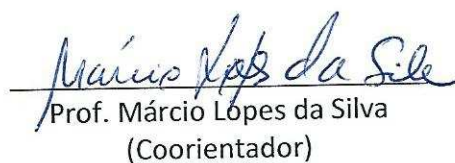 Márcio Lopes da Silva
Prof. Márcio Lopes da Silva
(Coorientador)